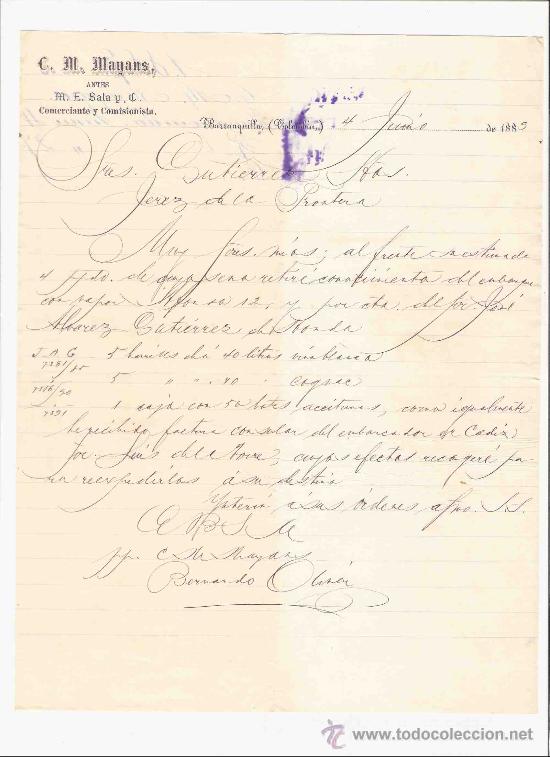 C. M. Mayans,
ANTES
M. E. Sala y C.
Comerciante y Comisionista.
Barranquilla, (Colombia,) 4 Junio de 1885
Sres. Gutierrez Hos.
Jerez de la Frontera
Muy Sres. mios; al frente su estimada
4 de cuyo seno retiré conocimiento del embarque
con vapor Alfonso 12, y por cta. del Sr. José
Alvarez Gutiérrez de Honda
J A G
5 barriles de á 40 litros vino blanco
5 " " . 40 " cognac
1 caja con 50 botes aceitunas, como igualmente
he recibido factura consular del embarcador de Cadiz
Sr. Luis de la Torre, cuyos efectos recogeré pa
ra reexpedirlos á su destino
á sus órdenes afmo. S. S.
Q B S M
pp. C. M. Mayans
Bernardo
TC www.todocoleccion.net